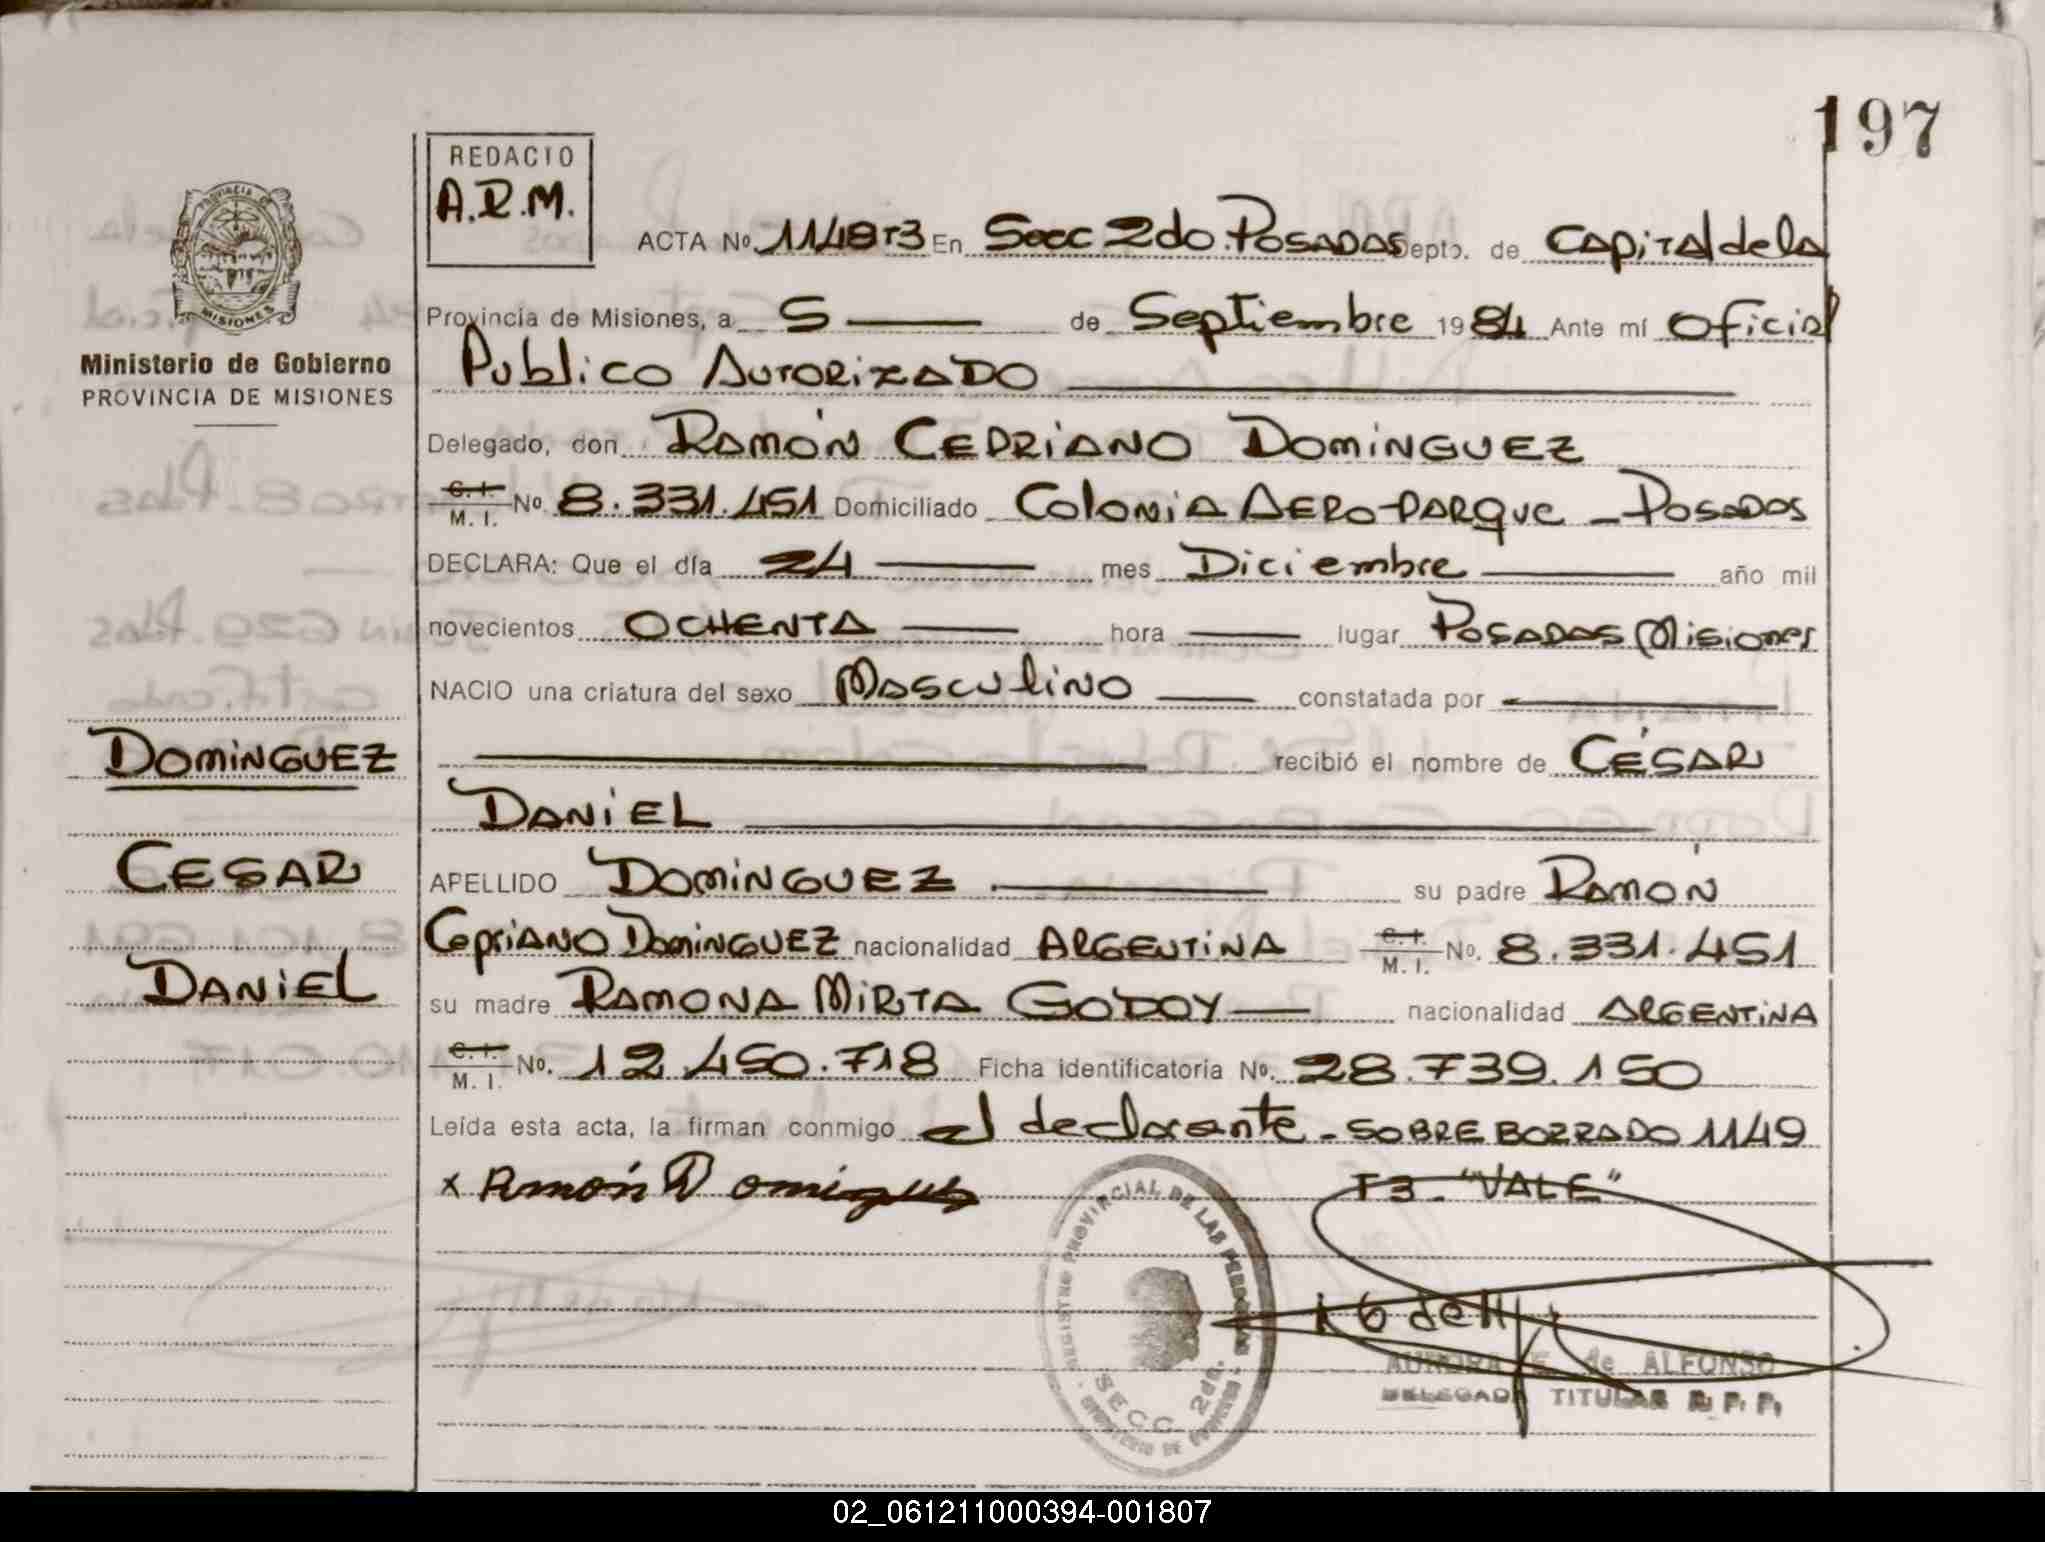 197
REDACIO
A.R.M.
ACTA No. 1149 T3 En Secc 2do. POSADAS Depto. de CAPITAL de la
Provincia de Misiones, a 5 de Septiembre 1984 Ante mí Oficial
Publico AUTORIZADO
Delegado, don RAMÓN CEPRIANO DOMINGUEZ
C. I. M. I. No. 8.331.451 Domiciliado COLONIA AERO-PARQUE - POSADAS
DECLARA: Que el día 24 mes Diciembre año mil
novecientos OCHENTA hora lugar POSADAS Misiones
NACIO una criatura del sexo MASCULINO constatada por
recibió el nombre de CÉSAR
DANIEL
APELLIDO DOMINGUEZ su padre RAMÓN
CEPRIANO DOMINGUEZ nacionalidad ARGENTINA C. I. M. I. No. 8.331.451
su madre RAMONA MIRTA GODOY nacionalidad ARGENTINA
C. I. M. I. No. 12.450.718 Ficha identificatoria No. 28.739.150
Leída esta acta, la firman conmigo el declarante - SOBRE BORRADO 1149
x Ramón Dominguez T3 - "VALE"
PROVINCIA DE
MISIONES
Ministerio de Gobierno
PROVINCIA DE MISIONES
DOMINGUEZ
CESAR
DANIEL
REGISTRO PROVINCIAL DE LAS PERSONAS
SECC. 2da.
MINISTERIO DE GOBIERNO
AURORA E. de ALFONSO
DELEGADA TITULAR R. P. P.
02_061211000394-001807